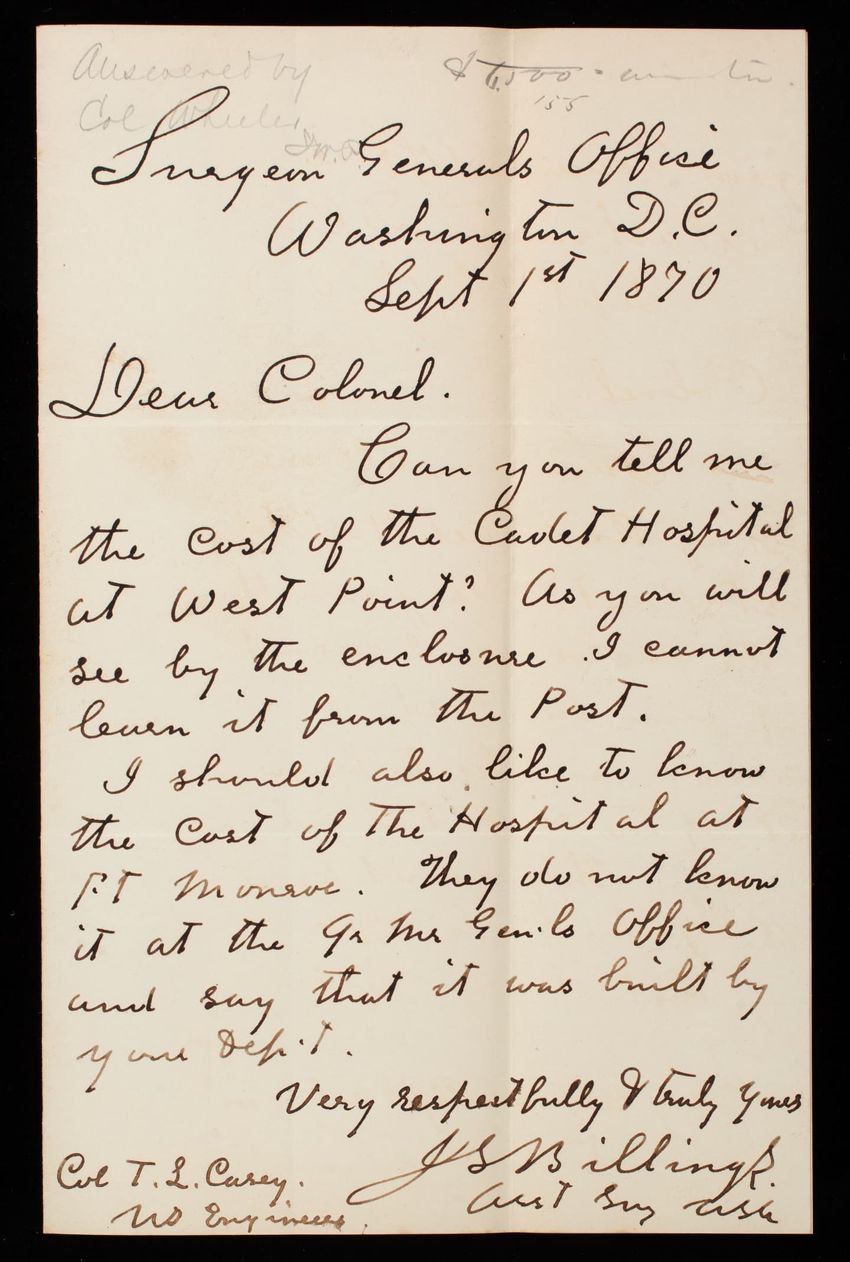 Answered by
Col Wheeler
$ 6,500
155
Surgeon Generals Office
Washington D.C.
Sept 1st 1870
Dear Colonel.
Can you tell me
the cost of the Cadet Hospital
at West Point? As you will
see by the enclosure I cannot
learn it from the Post.
I should also like to know
the cost of the Hospital at
Ft Monroe. They do not know
it at the Qr Mr Gen'ls Office
and say that it was built by
your Dep't.
Very respectfully & truly yours
JS Billings.
Asst Surg USA
Col T. L. Casey.
US Engineers.